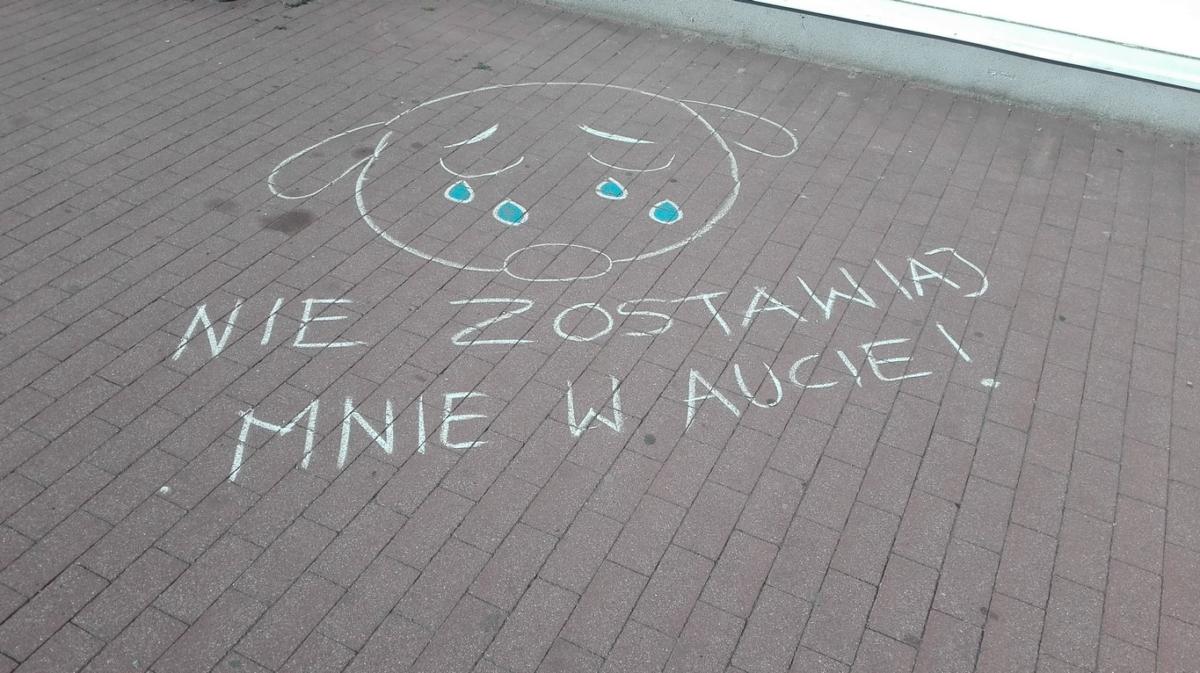 NIE ZOSTAWIAJ
MNIE W AUCIE!